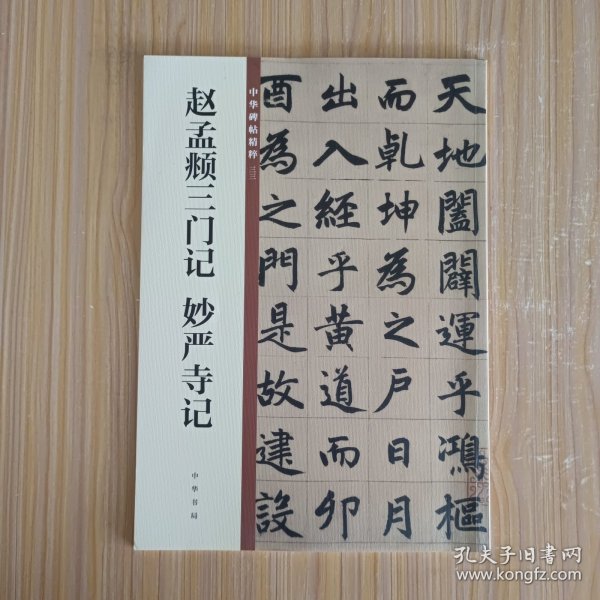 赵孟頫三门记 妙严寺记
中华书局
中华碑帖精粹
天地闔闢運乎鴻樞
而乹坤為之户日月
出入經乎黄道而卯
酉為之門是故建設
孔夫子旧书网
www.kongfz.com